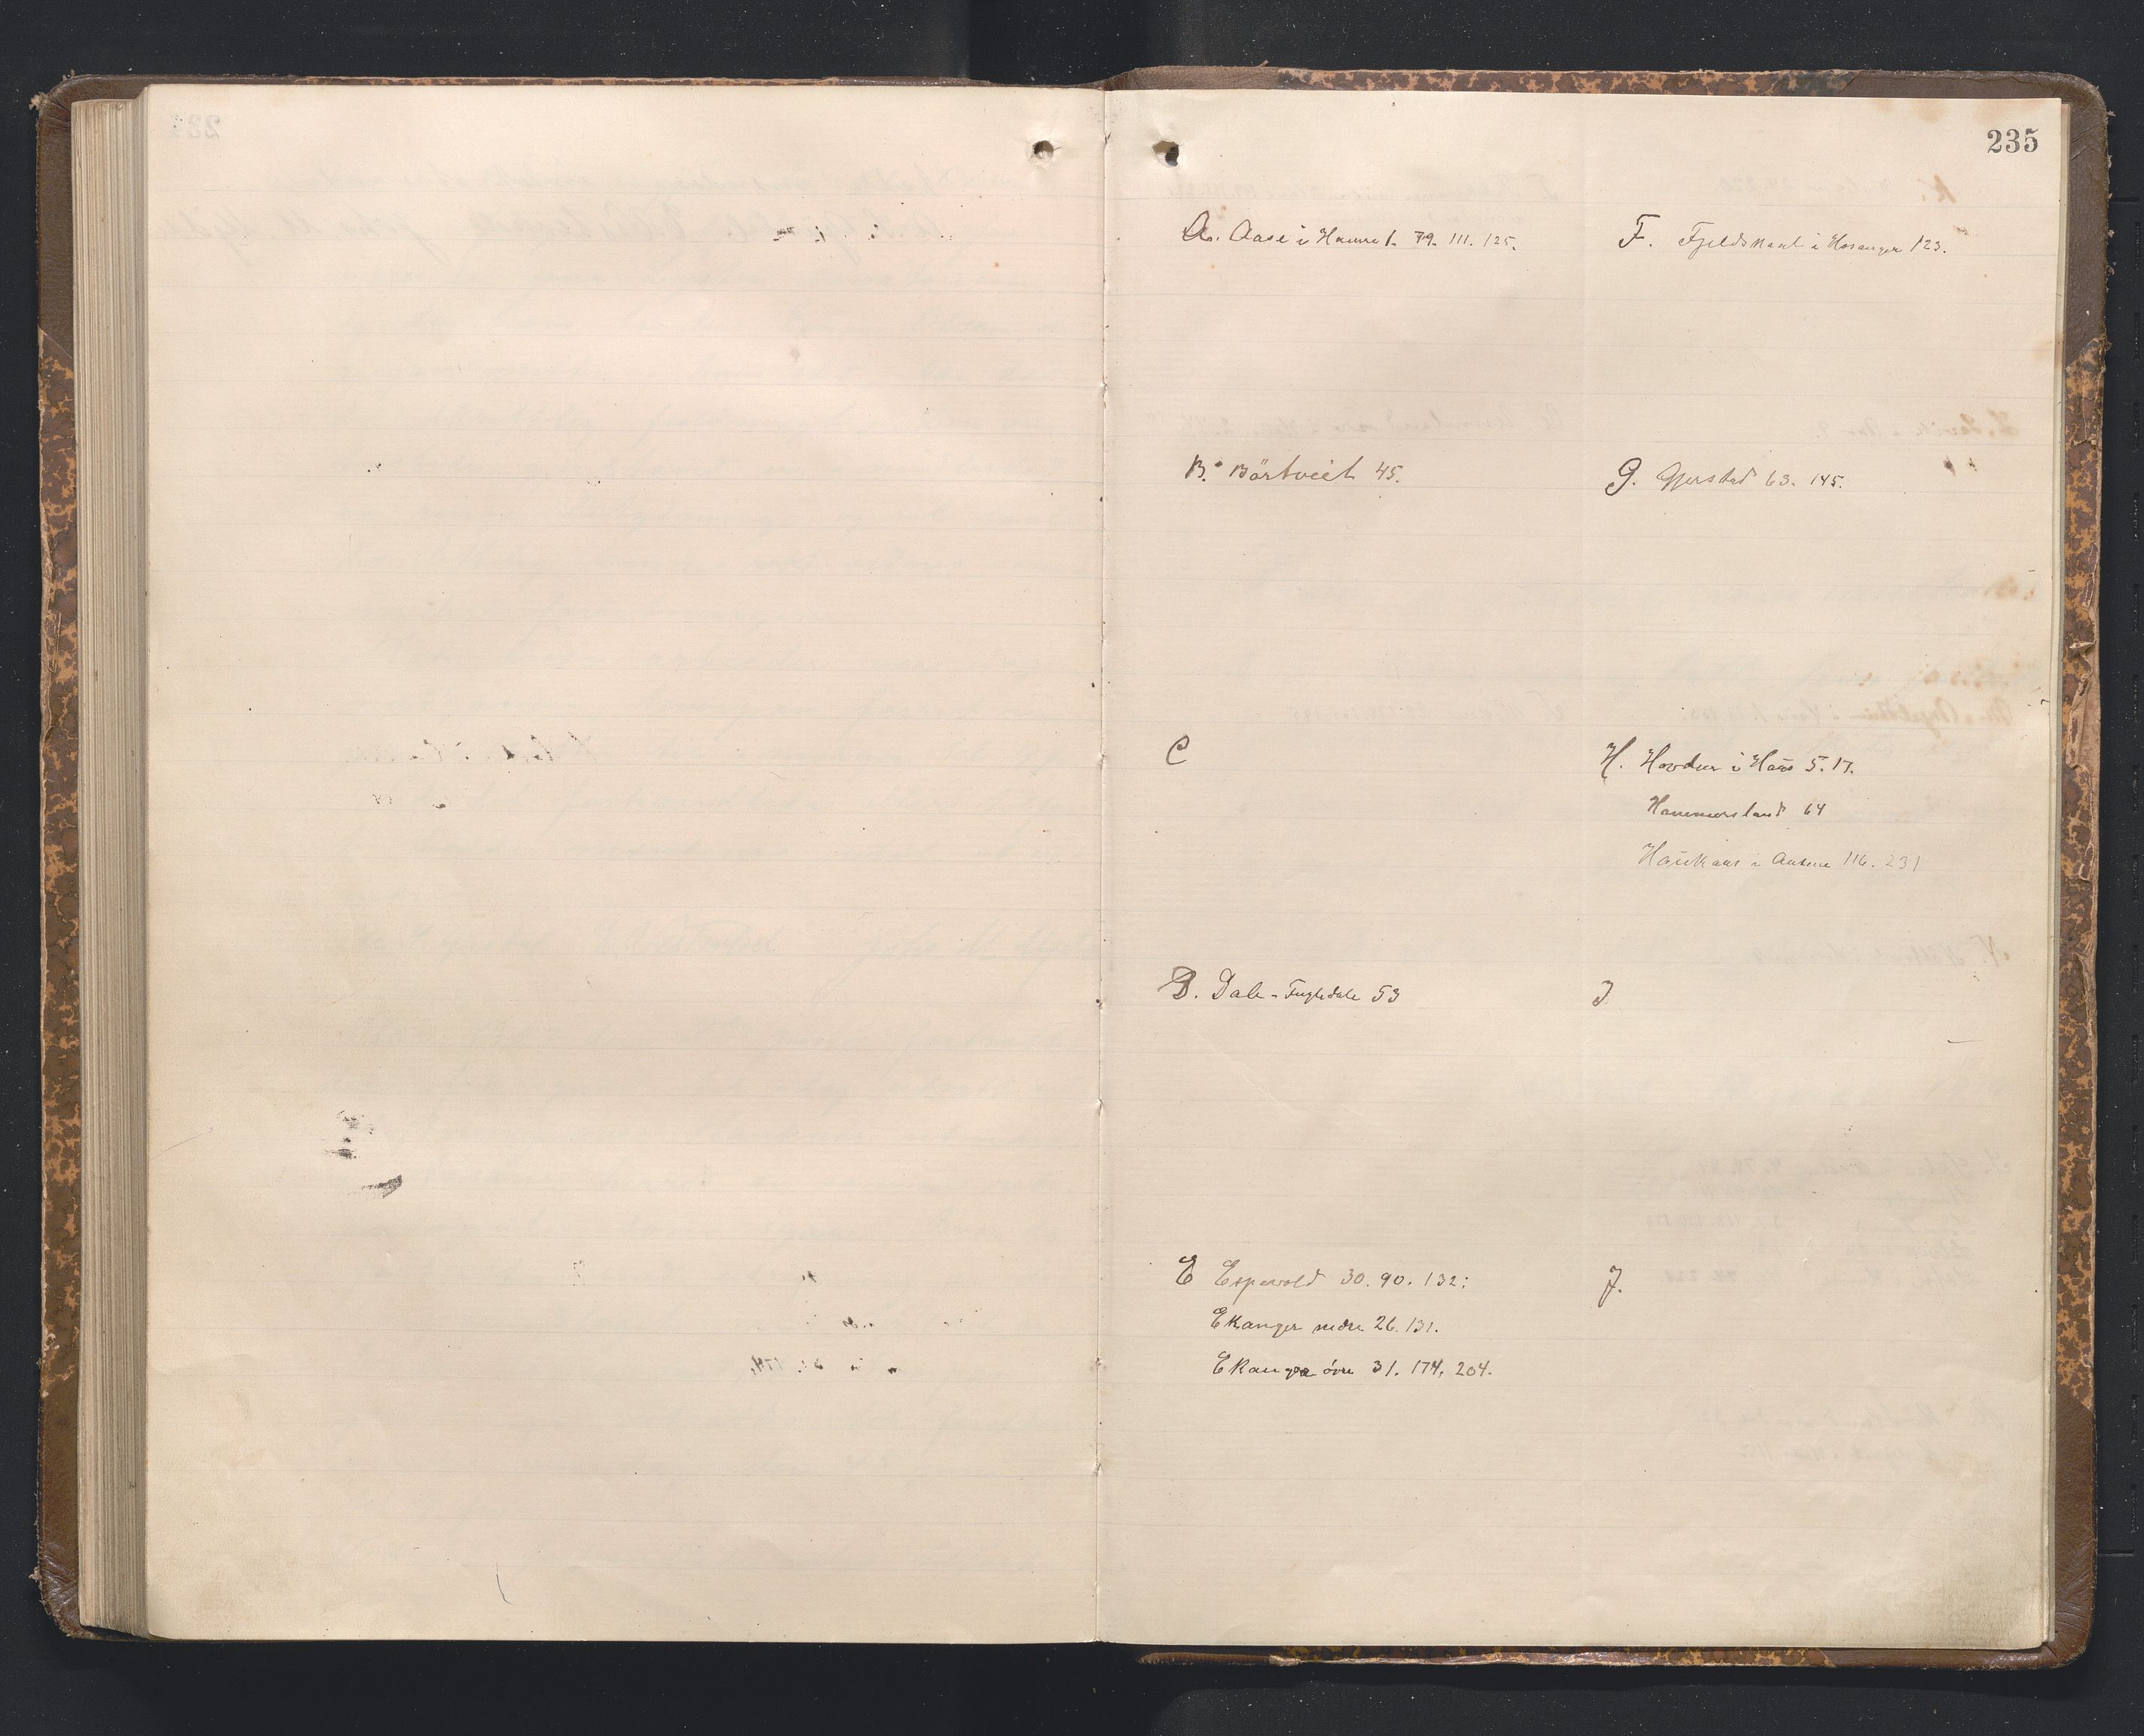 235
A. Aase i Hammer 79. 111. 125.
B. Börtveit 45.
C
D. Dale - Fugledale 53
E Espevold 30. 90. 132.
Ekanger nedre 26. 131.
Ekanger övre 31. 174, 204.
F. Fjeldskaal i Hosanger 123.
G. Gjerstad 63. 145.
H. Hovden i Haus 5. 17.
Hammersland 64
Haukaas i 116. 231
I
J.